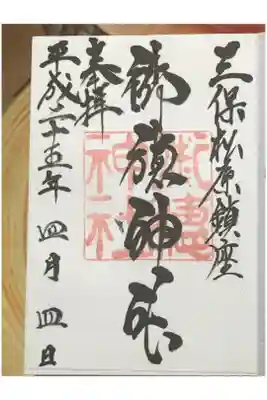 三保松原鎮座
御穗神社
御穗神社
奉拝
平成二十五年四月四日